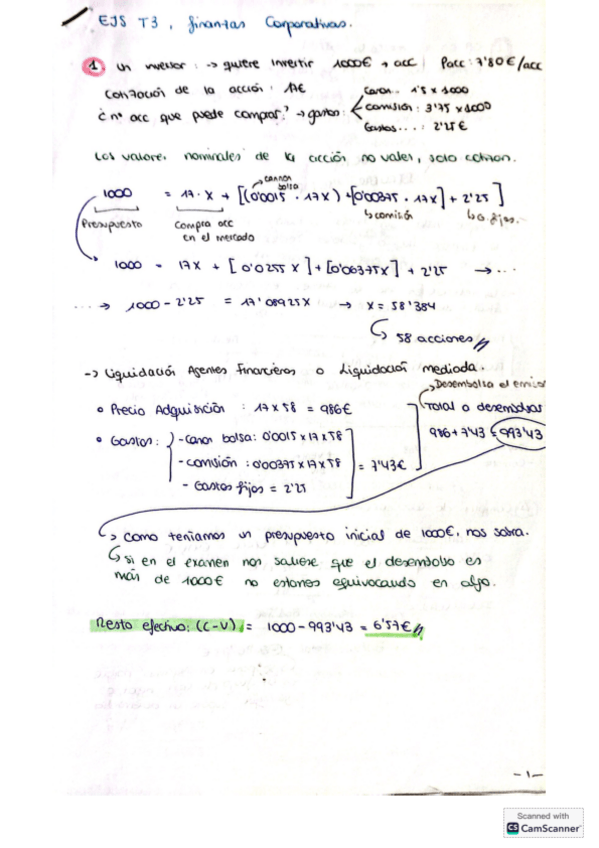 EJS T3, Finanzas Corporativas.
1. Un inversor: → quiere invertir 1000€ → acc | Pacc: 7'80€/acc
Cotización de la acción: 17€
¿nº acc que puede comprar? → gastos:
Canon.. 1'5 x 1000
comisión: 3'75 x 1000
Gastos...: 2'25€
Los valores nominales de la acción no valen, solo cotizan.
cannon bolsa
1000 = 17·X + [(0'0015 · 17X) + [0'00375 · 17X] + 2'25]
Presupuesto
Compra acc en el mercado
↳ comisión
↳ G. fijos.
1000 = 17X + [0'0255X] + [0'06375X] + 2'25 → ...
... → 1000 - 2'25 = 17'08925X → X = 58'384
↳ 58 acciones
→ Liquidación Agentes Financieros o Liquidación mediada.
→ Desembolsa el emisor
• Precio Adquisición: 17 x 58 = 986€
Total a desembolsar
986 + 7'43 = 993'43
• Gastos:
- Canon bolsa: 0'0015 x 17 x 58
- comisión: 0'00375 x 17 x 58
- Gastos fijos = 2'25
= 7'43€
↳ Como teníamos un presupuesto inicial de 1000€, nos sobra.
↳ Si en el examen nos saliese que el desembolso es
más de 1000€ no estamos equivocando en algo.
Resto efectivo: (C-V) = 1000 - 993'43 = 6'57€
-1-
Scanned with
CS CamScanner